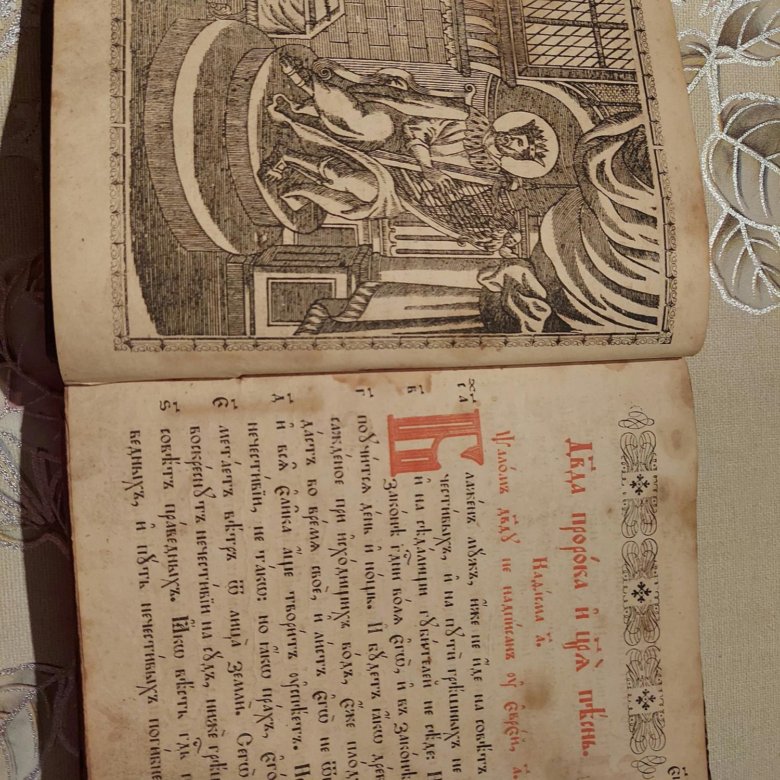 Дв҃да проро́ка и҆ цр҃ѧ̀ пѣ́снь.
Каѳі́сма а҃.
Ѱало́мъ дв҃дꙋ не надпи́санъ оу҆ є҆вре́й, а҃.
Блаже́нъ мꙋ́жъ, и҆́же не и҆́де на совѣ́тъ
чести́выхъ, и҆ на пꙋтѝ грѣ́шныхъ не
и҆ на сѣда́лищи гꙋби́телей не сѣ́де:
Зако́нѣ гд҇ни во́лѧ є҆гѡ̀, и҆ въ зако́нѣ
поꙋчи́тсѧ де́нь и҆ но́щь. И҆ бꙋ́детъ ꙗ҆́кѡ дре
сажде́ное при и҆схо́дищихъ во́дъ, є҆́же плод
да́стъ во вре́мѧ своѐ, и҆ ли́стъ є҆гѡ̀ не ѿ
и҆ всѧ̑ є҆ли́ка а҆́ще твори́тъ оу҆спѣ́етъ. Не
нечести́вїи, не та́кѡ: но ꙗ҆́кѡ пра́хъ, є҆го
смета́етъ вѣ́тръ ѿ лица̀ землѝ. Сегѡ̀
воскре́снꙋтъ нечести́вїи на сꙋ́дъ, нижѐ грѣ
совѣ́тъ пра́ведныхъ. Ꙗ҆́кѡ вѣ́сть гд҇ь п
ведныхъ, и҆ пꙋ́ть нечести́выхъ поги́бне